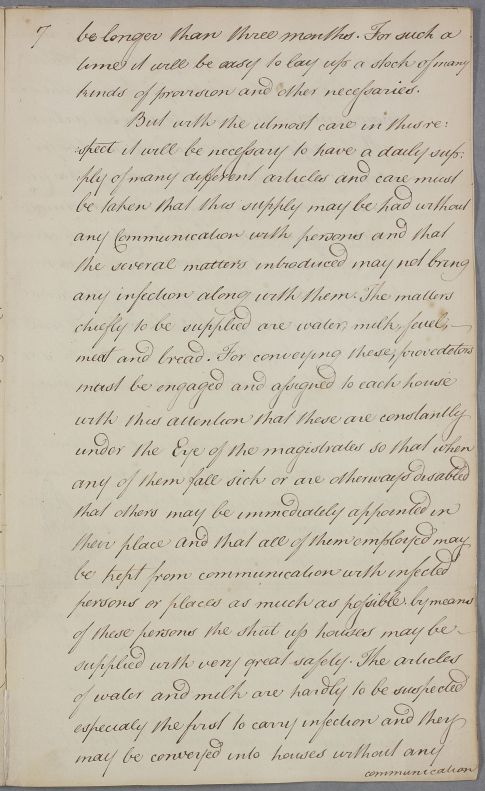 7 be longer than three months. For such a
time it will be easy to lay up a stock of many
kinds of provision and other necessaries.
But with the utmost care in this re:
:spect it will be necessary to have a daily sup:
ply of many different articles and care must
be taken that this supply may be had without
any Communication with persons and that
the several matters introduced may not bring
any infection along with them. The matters
chiefly to be supplied are water, milk, feuel,
meat and bread. For conveying these, provedetors
must be engaged and assigned to each house
with this attention that these are constantly
under the Eye of the magistrates so that when
any of them fall sick or are otherways disabled
that others may be immediately appointed in
their place and that all of them employed may
be kept from communication with infected
persons or places as much as possible. by means
of these persons the shut up houses may be
supplied with very great safety. The articles
of water and milk are hardly to be suspected
especialy the first to carry infection and they
may be conveyed into houses without any
communication